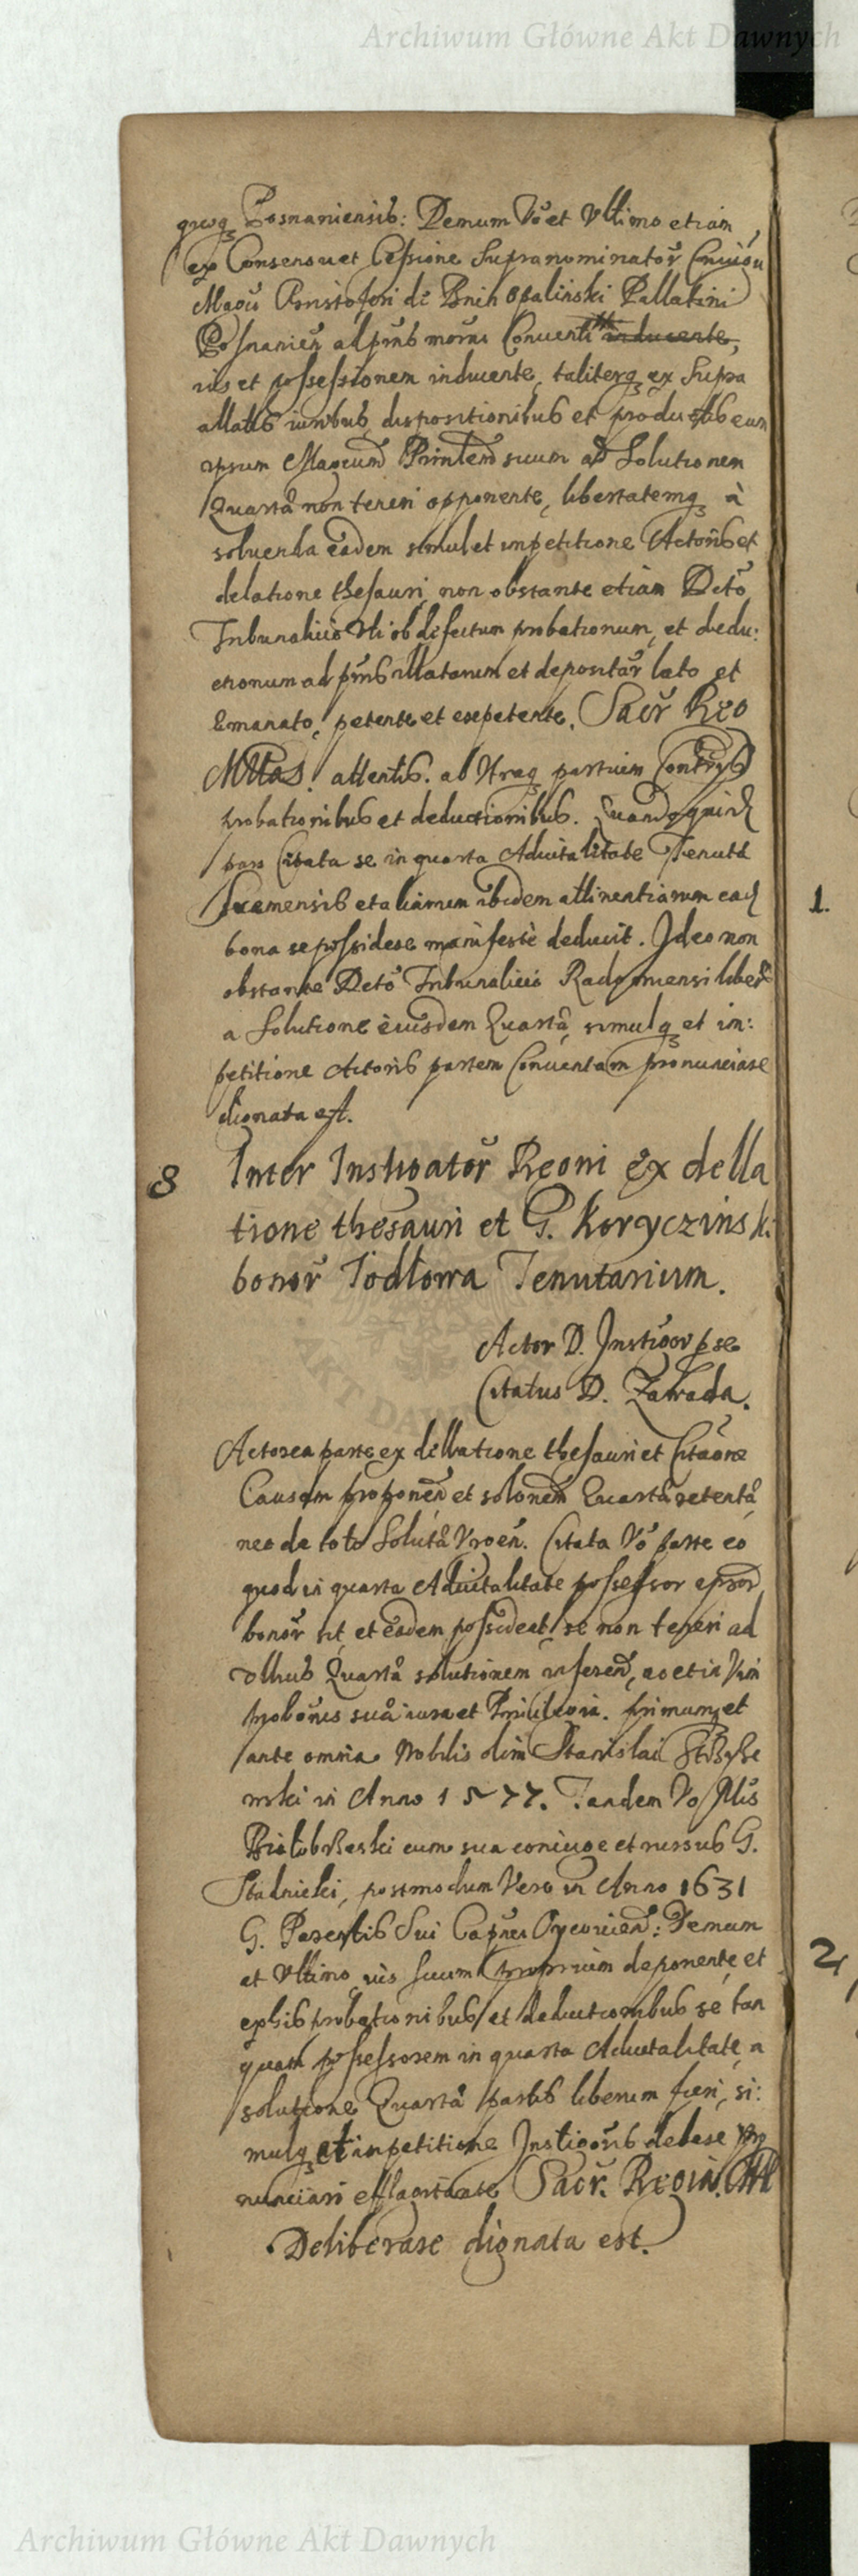 Archiwum Główne Akt Dawnych
Posnaniensis: Demum Vo et Ultimo etiam
ex Consensu et Cessione Supranominator̃
Christofori de Bnin Opalinski Pallatini
Posnanien ad p̃ns morm̃ Conventi inducente,
ius et possessionem inducente, taliterq ex Supra
allatis iuribus dispositionibus et productis eum
ipsum Magcum suum ad Solutionem
Quartæ non teneri opponente, libertatemq à
solvenda eadem simul et impetitione Actoris et
delatione thesauri, non obstante etiam Dcto
Tribunalicio Uti ob defectum probationum, et dedu:
ctionum ad p̃ns illatarum et depositar̃ lato et
Emanato, petente et expetente. Sacr̃ Reg
Mttas. attentis. ab Utraq partium Contrys
probationibus et deductionibus. Quandoquid
pars Citata se in quarta Advitalitate Tenutæ
Sremensis et aliarum ibidem attinentiarum ead
bona se possidere manifestè deducit. Ideo non
obstante Dcto Tribunalicio Radomiensi liber̃
a Solutione eiusdem Quartæ, simulq et im:
petitione Actoris partem Conventam pronunciare
dignata est.
8 Inter Instigator̃ Regni ex della
tione thesauri et G. Koryczinsk:
bonor̃ Jodłowa Tenutarium.
Actor D. Instigor pse
Citatus D. Zawada.
Actorea parte ex dellatione thesauri et Citaõne
Causam proponen et solõnem Quartæ retentæ
nec de toto Solutæ Vrgen. Citata Vo parte eo
quod in quarta Advitalitate possessor eorũd
bonor̃ sit, et eadem possideat, se non teneri ad
ullius Quartæ solutionem inferend, ac et in Vim
probõnis suæ iura et Privilegia. primum et
ante omnia Nobilis olim Stanislai
mski in Anno 1577. Tandem Vo
Białobrzeski cum sua coniuge et rursus G.
Stadnicki, postmodum Vero in Anno 1631
G. Parentis Sui Capnei Oycovien: Demum
et Ultimo ius suum proprium deponente, et
ex his probationibus et deductionibus se tan
quam possessorem in quarta Advitalitate, a
solutione Quartæ partis liberum fieri, si:
mulq et impetitione Instigoris debere pro
nunciari efflagitante Sacr. Regia. Mtt
Deliberare dignata est.
1.
2,
Archiwum Główne Akt Dawnych